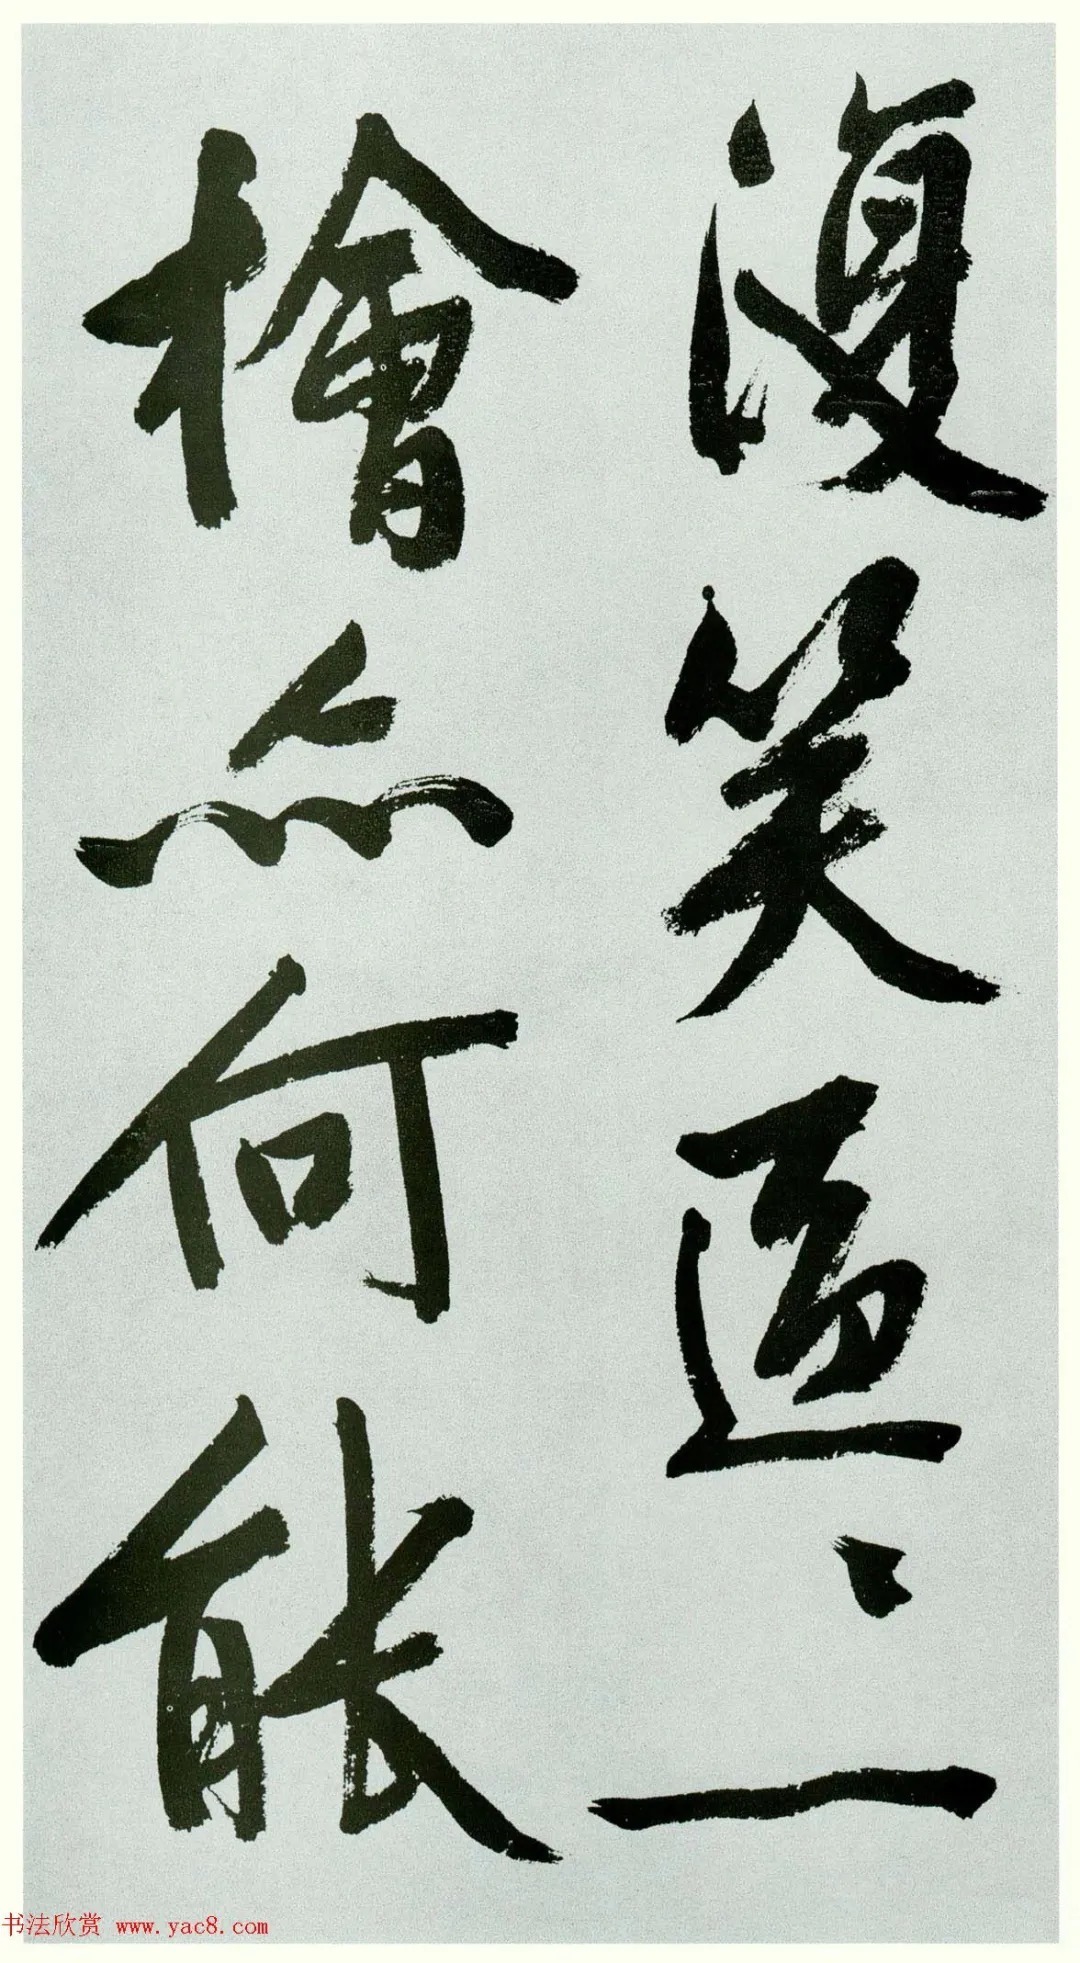 復笑區〻一
檜亦何能
书法欣赏 www.yac8.com